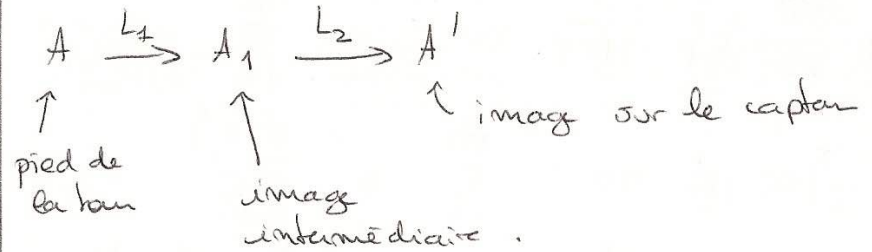 A L1 → A1 L2 → A'
↑ ↑ ↑ image sur le capteur
pied de
la tour
image
intermédiaire.